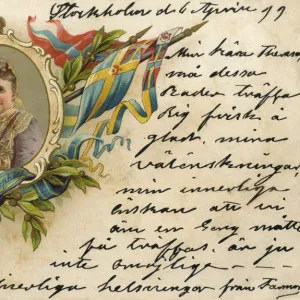 Stockholm d 6 April 99
Min kära
må dessa
Rader träffa
Dig frisk &
glad, mina
välönskningar
min innerliga
önskan att vi
än en Gång måtte
få träffas. är ju
inte omöjliga
innerliga helsningar från Farmor